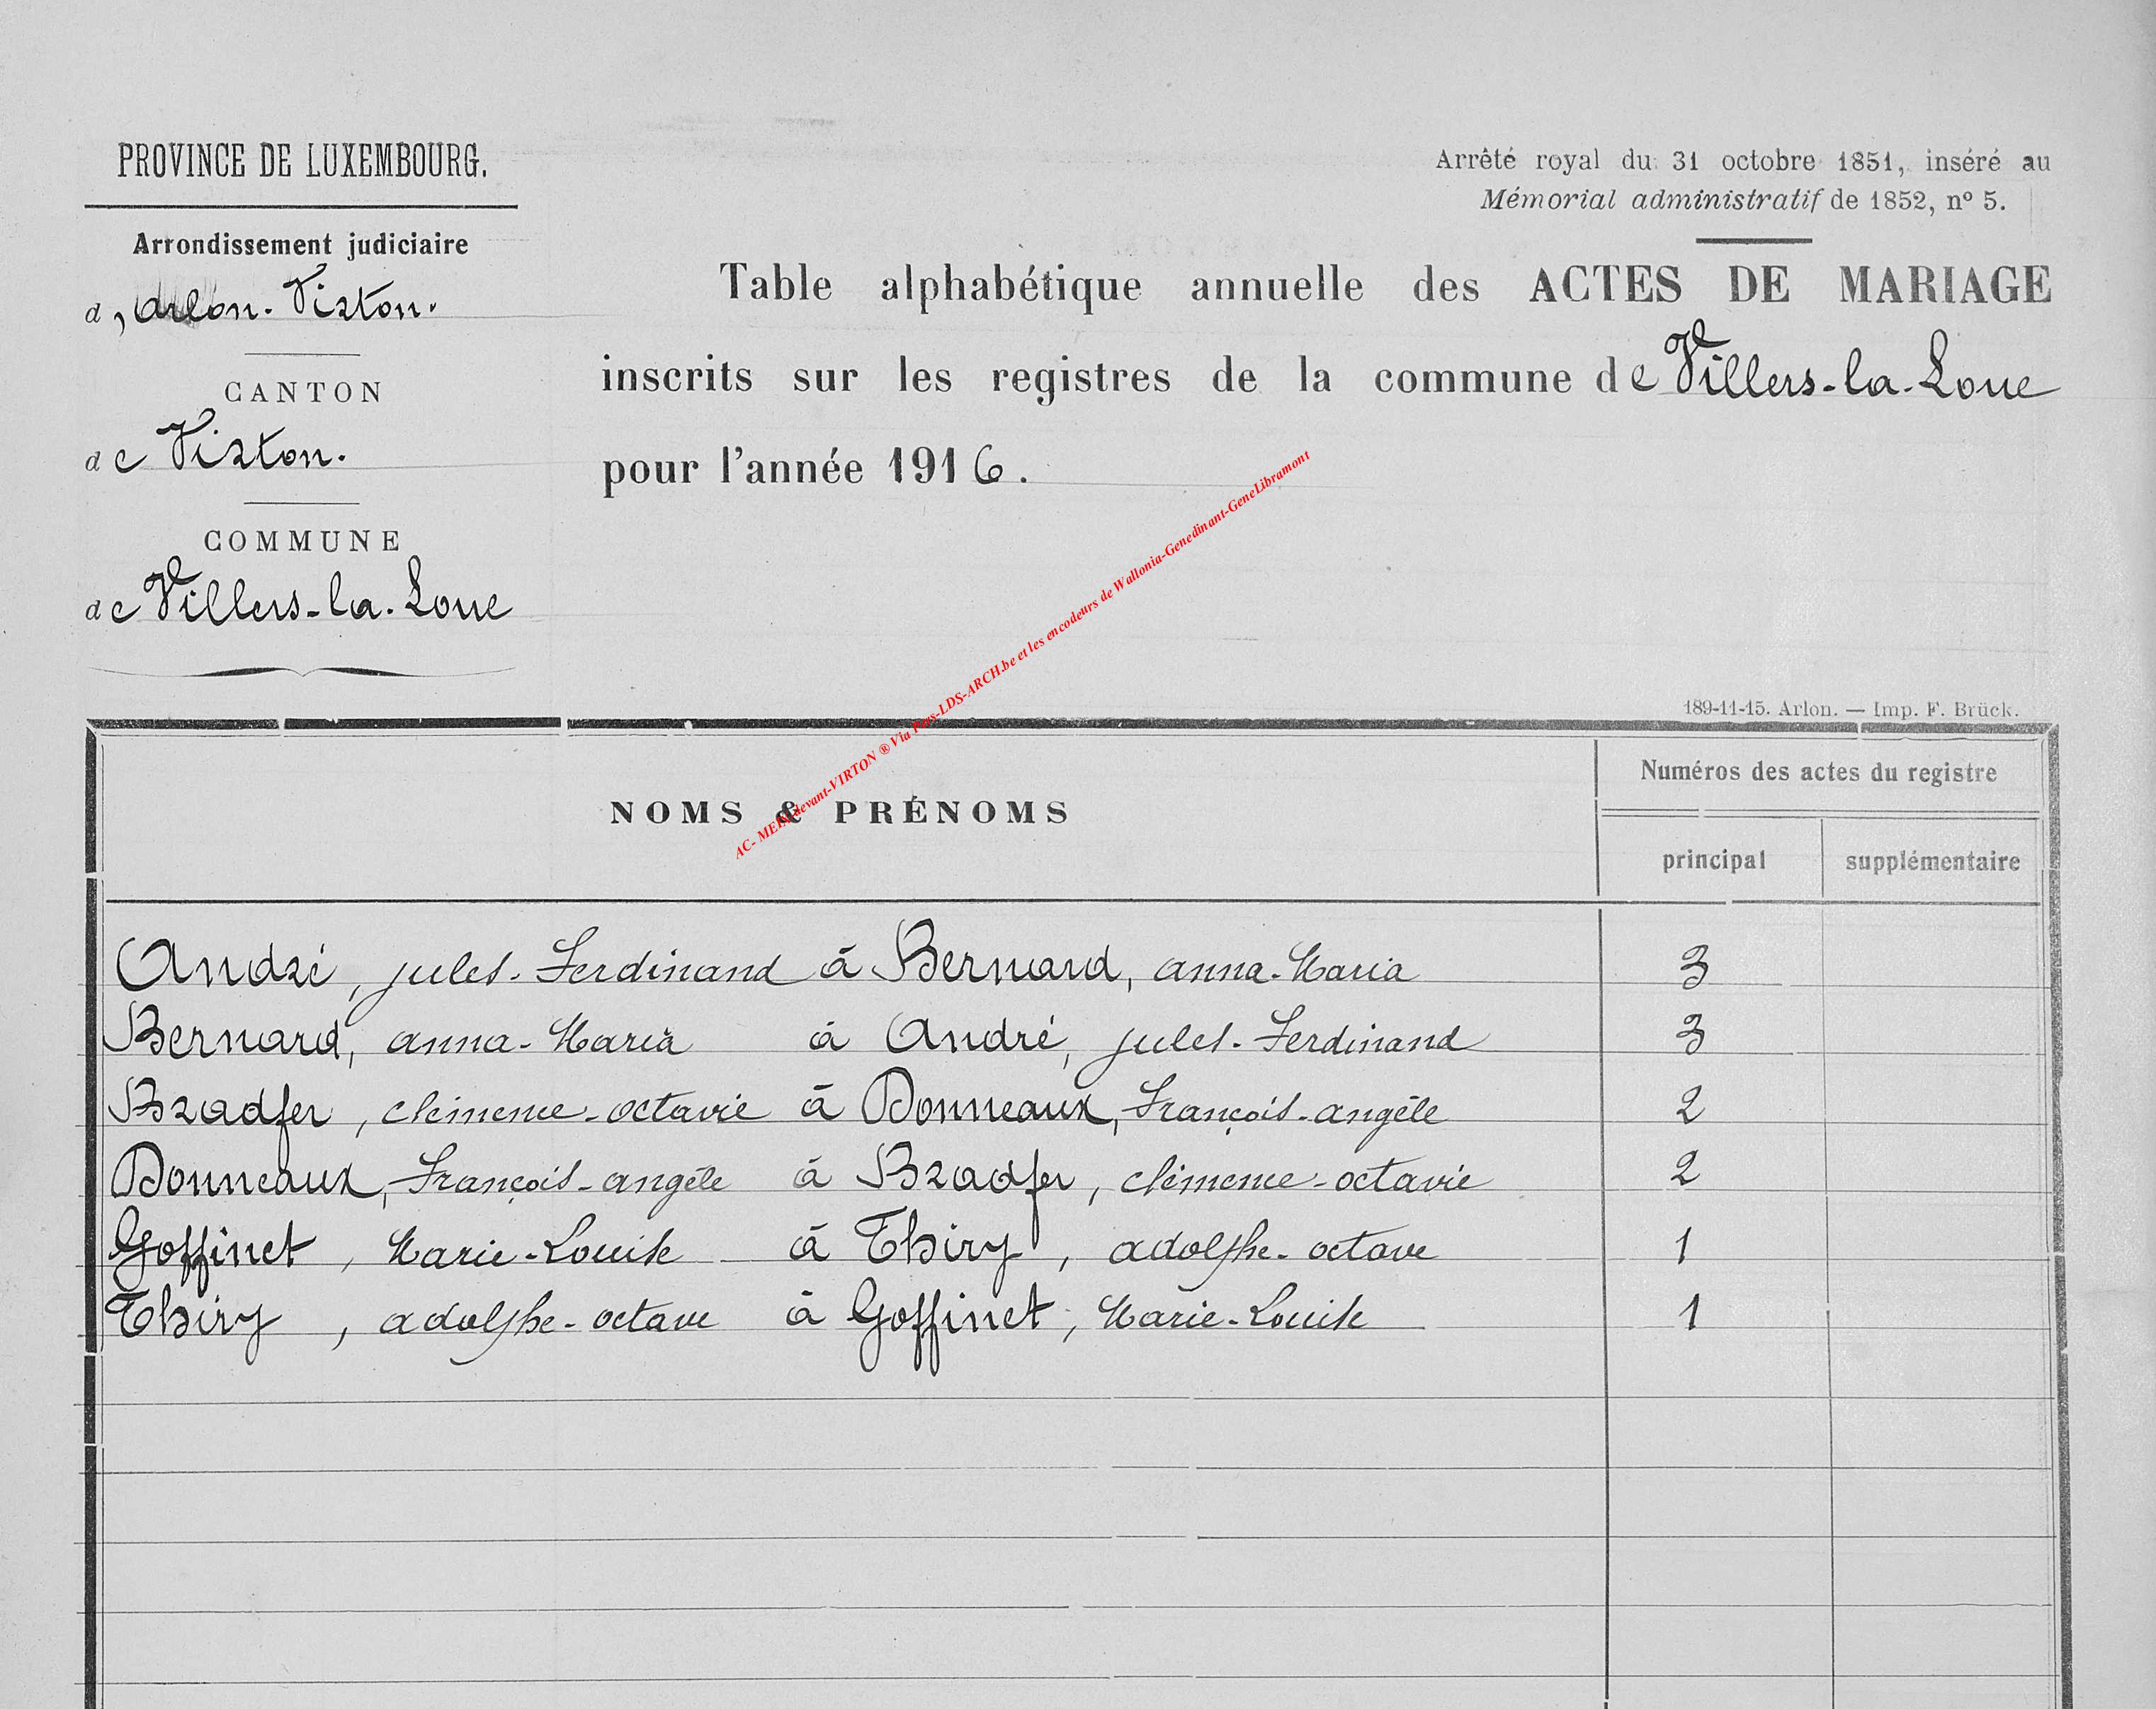 PROVINCE DE LUXEMBOURG.
Arrondissement judiciaire
d'Arlon-Virton.
CANTON
de Virton.
COMMUNE
de Villers-la-Loue
Arrêté royal du 31 octobre 1851, inséré au
Mémorial administratif de 1852, nº 5.
Table alphabétique annuelle des ACTES DE MARIAGE
inscrits sur les registres de la commune de Villers-la-Loue
pour l'année 1916.
189-11-15. Arlon. — Imp. F. Brück.
NOMS & PRÉNOMS
Numéros des actes du registre
principal supplémentaire
André, jules-Ferdinand à Bernard, anna-Maria 3
Bernard, anna-Maria à André, jules-Ferdinand 3
Bradfer, clémence-octavie à Donneaux, François-angèle 2
Donneaux, François-angèle à Bradfer, clémence-octavie 2
Goffinet, Marie-Louise à Thiry, adolphe-octave 1
Thiry, adolphe-octave à Goffinet, Marie-Louise 1
AC- devant-VIRTON ® Via LDS-ARCH.be et les encodeurs de Wallonia-Genedinant-GeneLibramont